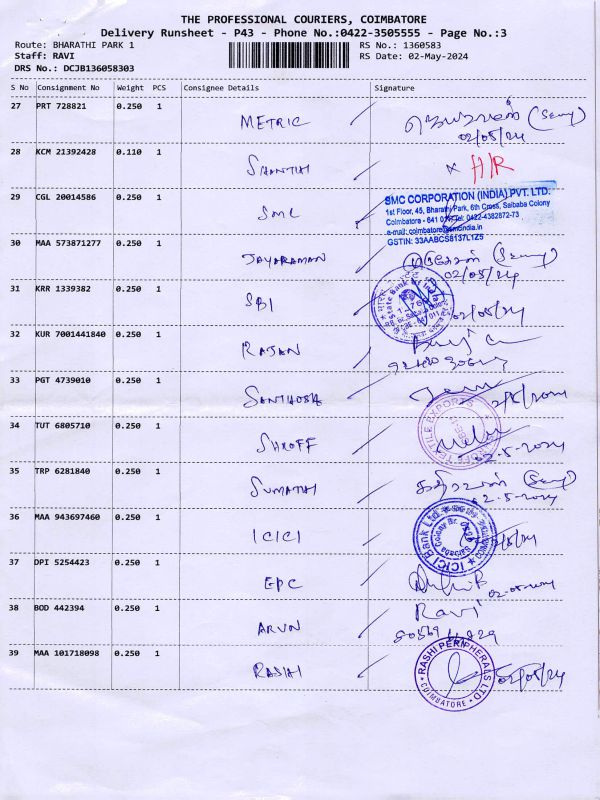 THE PROFESSIONAL COURIERS, COIMBATORE
Delivery Runsheet - P43 - Phone No.:0422-3505555 - Page No.:3
Route: BHARATHI PARK 1 RS No.: 1360583
Staff: RAVI RS Date: 02-May-2024
DRS No.: DCJB136058303
S No Consignment No Weight PCS Consignee Details Signature
27 PRT 728821 0.250 1 METRIC
02/05/24
28 KCM 21392428 0.110 1 SHANTHI × H/R
29 CGL 20014586 0.250 1 SMC
SMC CORPORATION (INDIA) PVT. LTD.
1st Floor, 45, Bharathi Park, 6th Cross, Saibaba Colony
Coimbatore - 641 Tel: 0422-4382872-73
e-mail:
GSTIN: 33AABCS8137L1Z5
30 MAA 573871277 0.250 1 JAYARAMAN
02/05/24
31 KRR 1339382 0.250 1 SBI
State Bank of India
02/05/24
32 KUR 7001441840 0.250 1 RAJAN
33 PGT 4739010 0.250 1 SANTHOSH
34 TUT 6805710 0.250 1 SHROFF
TEXTILE EXPORTS
02-5-2024
35 TRP 6281840 0.250 1 SUMATHI
02-5-2024
36 MAA 943697460 0.250 1 ICICI
ICICI Bank Ltd.
37 DPI 5254423 0.250 1 EPC
02-05-2024
38 BOD 442394 0.250 1 ARUN Ravi
39 MAA 101718098 0.250 1 RASHI
RASHI PERIPHERALS LTD
COIMBATORE
02/05/24